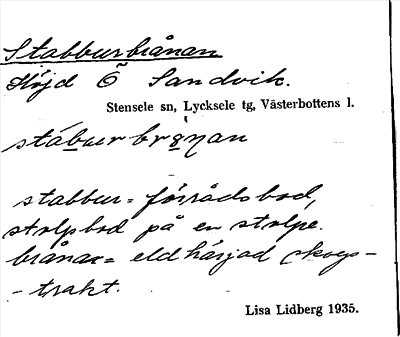 Stabburbrånan
Höjd Ö Sandvik.
Stensele sn, Lycksele tg, Västerbottens l.
stáburbrọṇan
stabbur = förrådsbod,
stolpbod på en stolpe.
brånan = eldhärjad skogs-
-trakt.
Lisa Lidberg 1935.